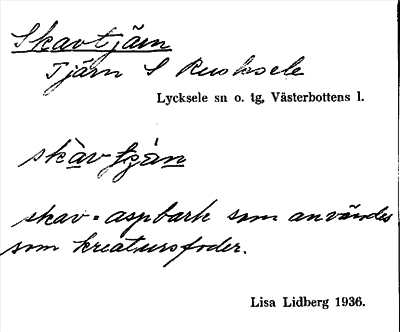 Skavtjärn
Tjärn S Rusksele
Lycksele sn o. tg, Västerbottens l.
skàv
skav = aspbark som användes
som kreatursfoder.
Lisa Lidberg 1936.